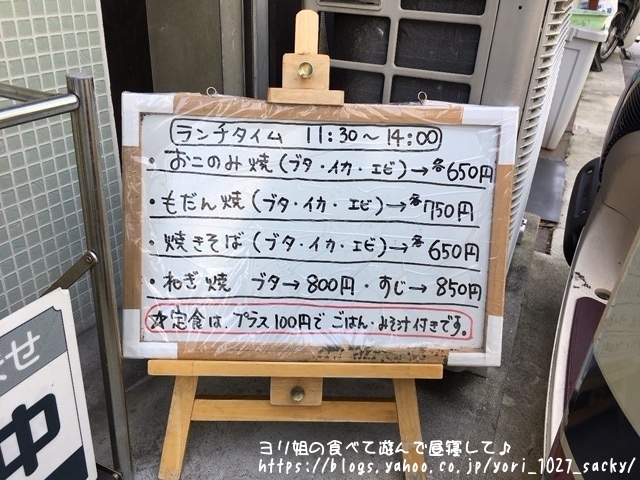 ランチタイム 11:30～14:00
・おこのみ焼(ブタ・イカ・エビ)→各650円
・もだん焼(ブタ・イカ・エビ)→各750円
・焼きそば(ブタ・イカ・エビ)→各650円
・ねぎ焼 ブタ→800円・すじ→850円
☆定食は、プラス100円で ごはん・みそ汁付きです。
せ
中
ヨリ姐の食べて遊んで昼寝して♪
https://blogs.yahoo.co.jp/yori_1027_sacky/